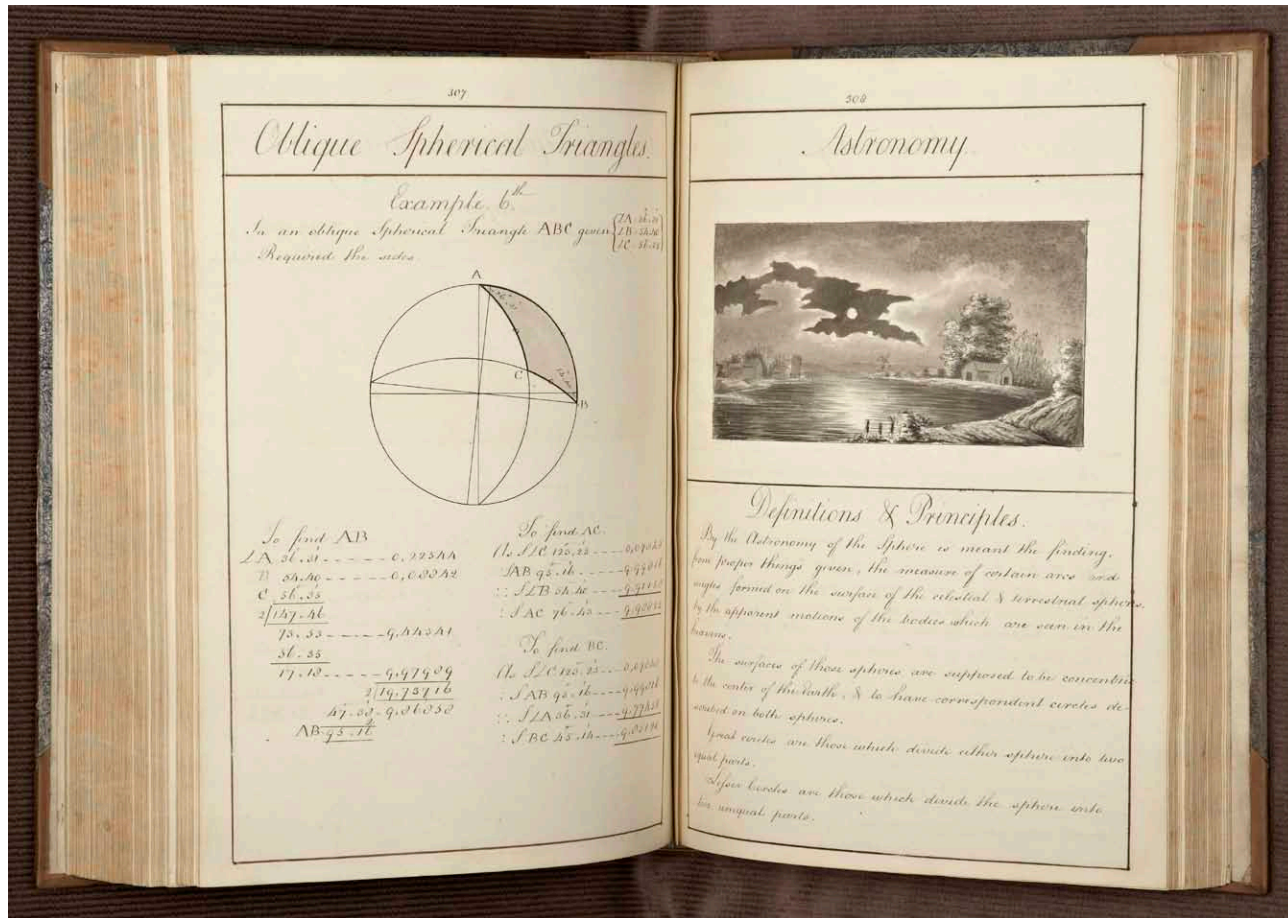 307
Oblique Spherical Triangles.
Example 6.th
In an oblique Spherical Triangle ABC given
∠B=54.40
Required the sides.
A
C
B
To find AB
∠A 36.31 ----- 0,22544
B 54.40 ----- 0,08842
C 56.35
2/147.46
73.53 ----- 9,44341
56.35
17.18 ----- 9,97989
2/19,73716
47.38 - 9,86858
AB 95.16
To find AC.
As S∠C 123.25
SAB 95.16
:: S∠B 54.40
: SAC 76.43
To find BC.
As S∠C 123.25
: SAB 95.16
:: S∠A 36.31
: SBC 45.14
Astronomy.
Definitions & Principles.
By the Astronomy of the Sphere is meant the finding,
from proper things given, the measure of certain arcs and
angles formed on the surface of the celestial & terrestrial spheres,
by the apparent motions of the bodies which are seen in the
heavens.
The surfaces of those spheres are supposed to be concentric
to the center of the Earth, & to have correspondent circles de-
scribed on both spheres.
Great circles are those which divide either sphere into two
equal parts.
Lesser Circles are those which divide the sphere into
two unequal parts.